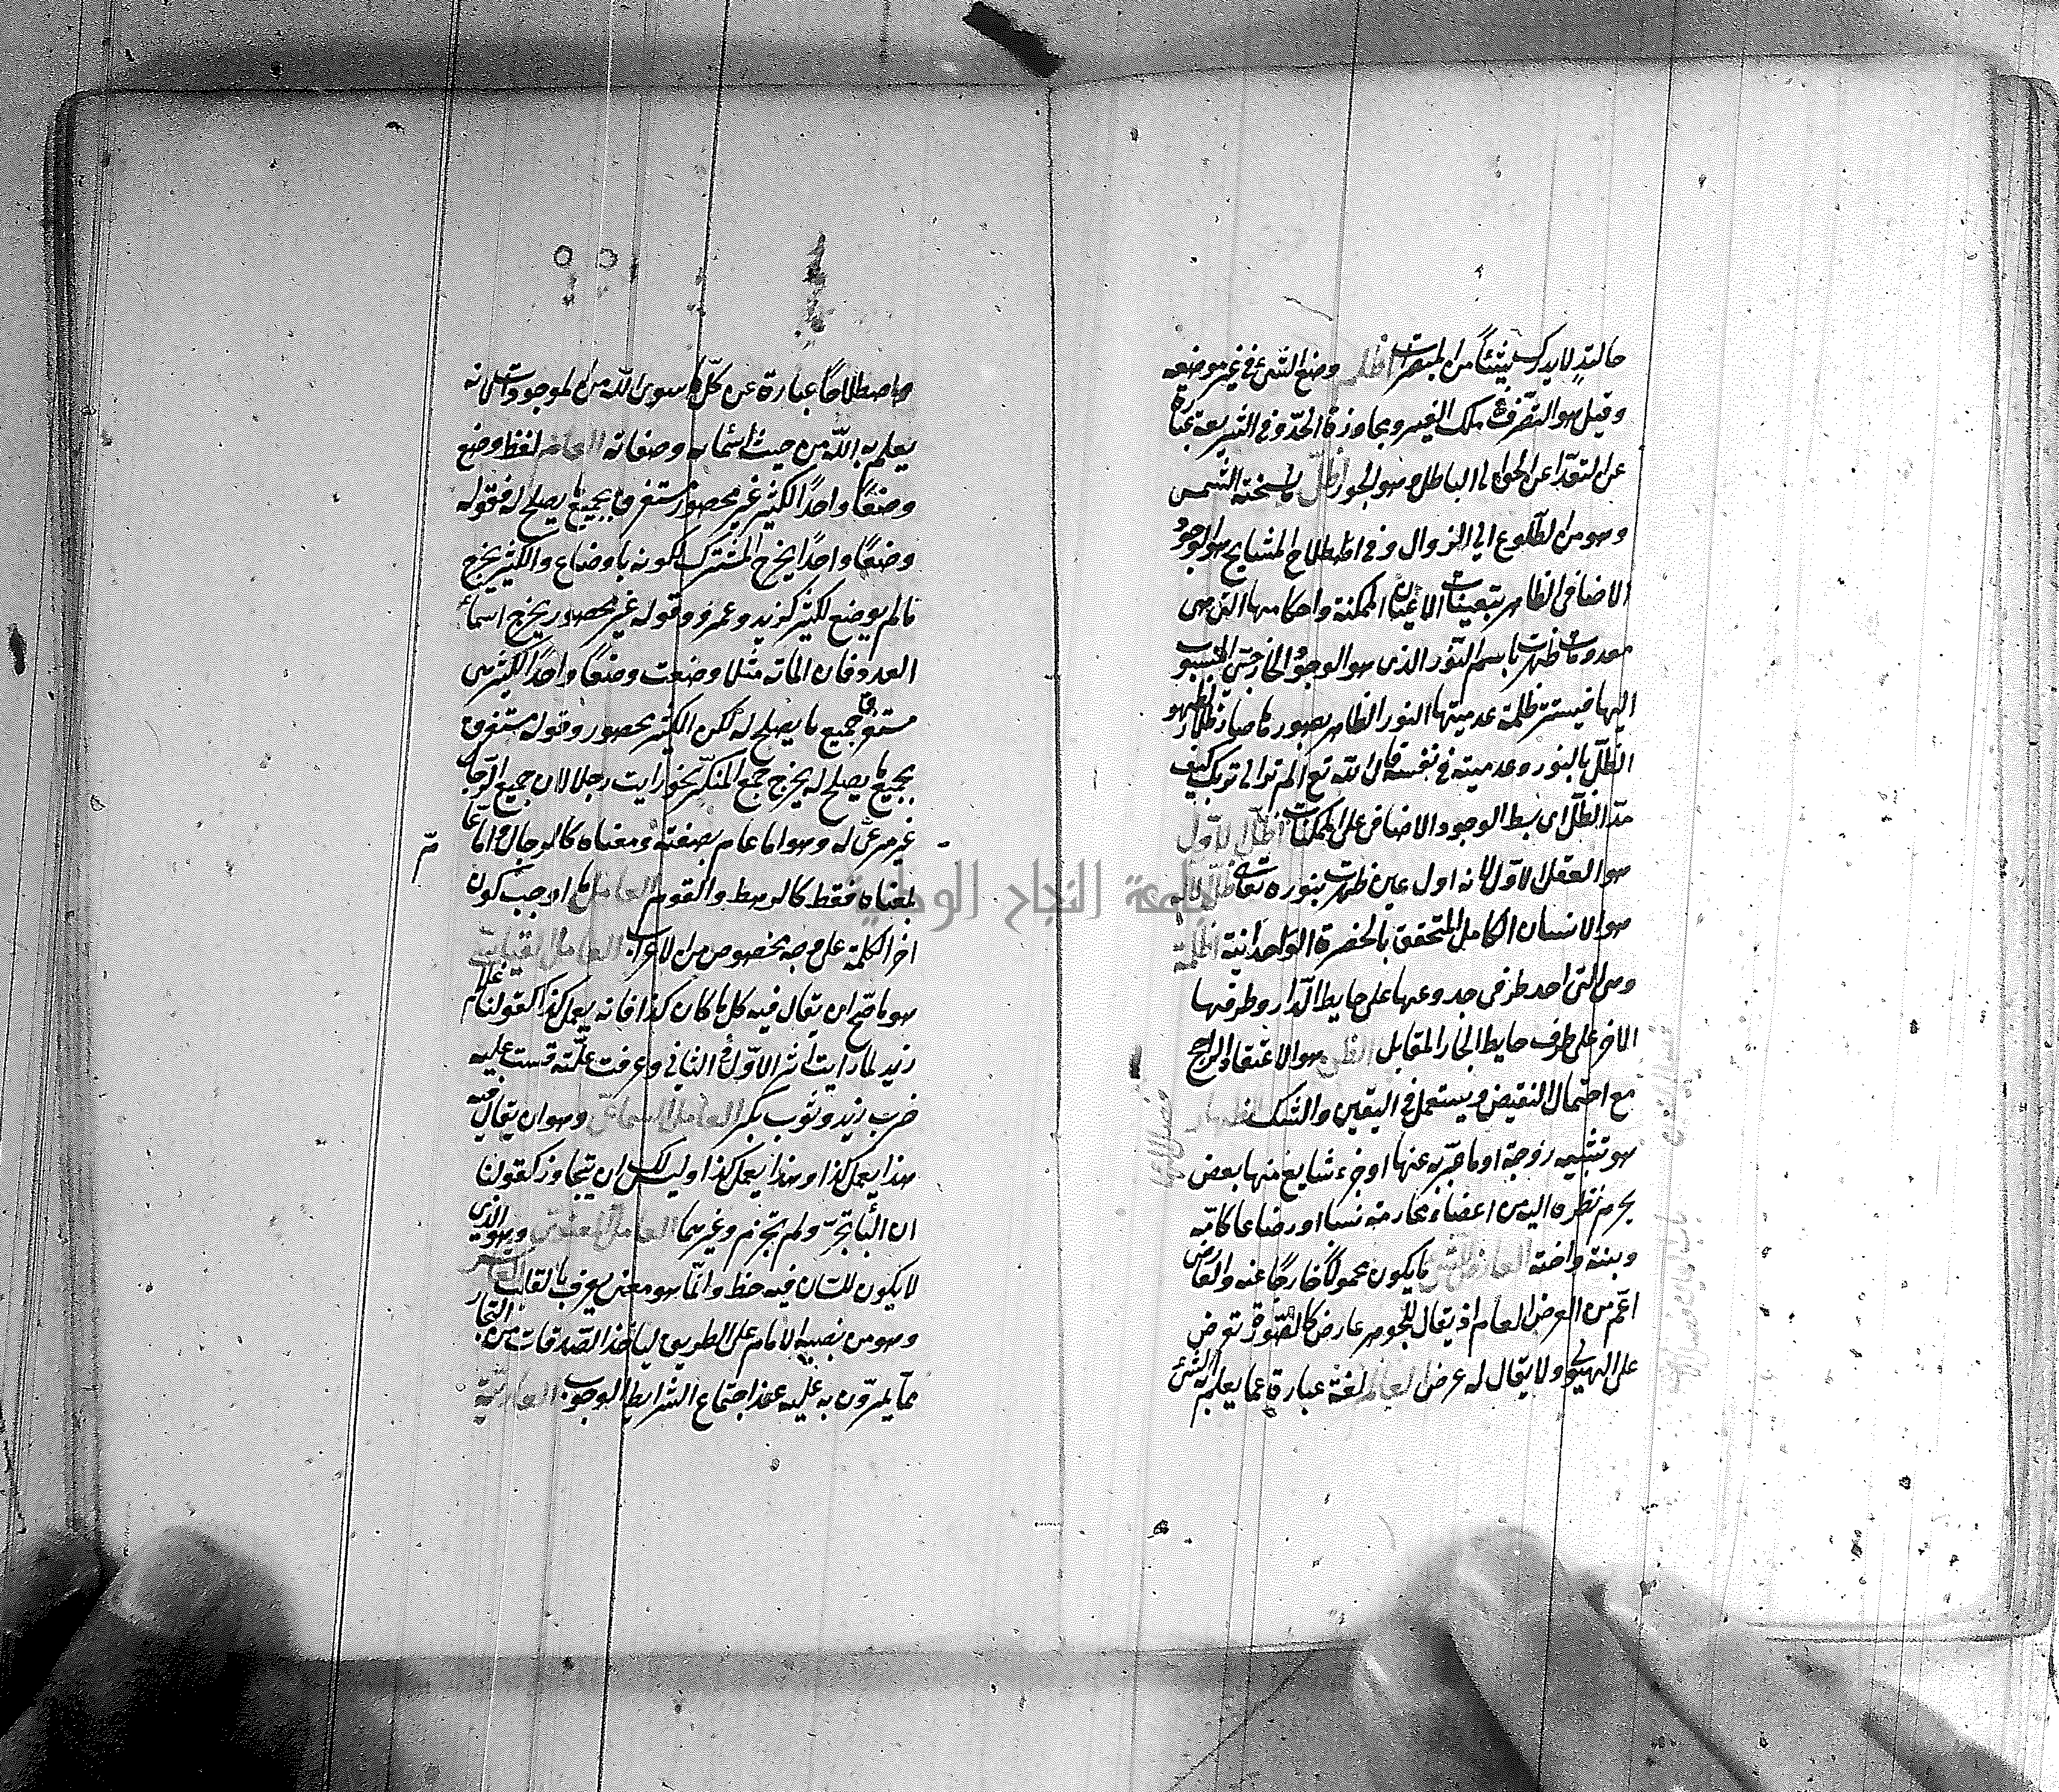 حالتذٍ لا يدرك شيئًا من المبصرات الظلم وضع الشئ في غير موضعه
وقيل هو التصرف في ملك الغير ومجاوزة الحدّ وفي الشريعة عبارة
عن التعدّي عن الحق الى الباطل وهو الجور الظلّ ما نسخته الشمس
وهو من الطلوع الى الزوال وفي اصطلاح المشايخ هو الوجود
الاضافي الظاهر بتعينات الاعيان الممكنة واحكامها التي هي
معدومات ظهرت باسم النور الذي هو الوجود الخارجي المنسوب
اليها فيستر ظلمة عدميتها النور الظاهر بصورها صار ظلا لظهور
الظلّ بالنور وعدميته في نفسه قال الله تع الم تر الى ربك كيف
مدّ الظلّ اى بسط الوجود الاضافي على الممكنات الظلّ الاوّل
هو العقل الاوّل لانه اول عين ظهرت بنوره تعالى ظلّ الاله
هو الانسان الكامل المتحقق بالحضرة الواحدانية الظلّة
وهي التي احد طرفي جذوعها على حايط الدّار وطرفها
الاخر على طرف حايط الجار المقابل الظن هو الاعتقاد الراجح
مع احتمال النقيض ويستعمل في اليقين والشك الظهار
هو تشبيه زوجة او ما عبّر به عنها او جزء شايع منها بعض
يحرم نظره اليه من اعضاء محارمه نسبا او رضاعا كامّه
وبنته واخته العارض للشئ ما يكون محمولًا خارجًا عنه والعارض
اعّم من العرض العام اذ يقال للجوهر عارض كالصّورة تعرض
على الهيولى ولا يقال له عرض العالم لغة عبارة عما يعلم به الشئ
فصل الالف
واصطلاحًا عبارة عن كلّ ما سوى الله من الموجودات لانه
يعلم به الله من حيث اسمائه وصفاته العام لفظ وضع
وضعًا واحدًا لكثير غير محصور مستغرق بجميع ما يصلح له فقوله
وضعًا واحدًا يخرج المشترك لكونه باوضاع والكثير يخرج
ما لم يوضع لكثير كزيد وعمرو وقوله غير محصور يخرج اسماء
العدد فان المائة مثلا وضعت وضعًا واحدًا لكثير هي
مستغرقة جميع ما يصلح له لكن الكثير محصور وقوله مستغرق
بجميع ما يصلح له يخرج جمع المنكّر نحو رايت رجلا لان جميع الرّجال
غير مرئى له وهو اما عام بصيغته ومعناه كالرجال واما عام
بمعناه فقط كالرهط والقوم العامل ما اوجب كون
اخر الكلمة على وجه مخصوص من الاعراب العامل القياسى
هو ما صّح ان يقال فيه كل ما كان كذا فانه يعمل كذا كقولنا غلام
زيد لما رايت أثر الاوّل في الثاني وعرفت علّته قست عليه
ضرب زيد وثوب بكر العامل السماعى وهو ان يقال فيه
هذا يعمل كذا وهذا يعمل كذا وليس لك ان تتجاوز كقولنا
ان البا تجرّ ولم تجزم وغيرهما العامل المعنوى وهو الذى
لا يكون للسان فيه حظ وانّما هو معنى يعرف بالقلب العاشر
وهو من نصبه الامام على الطريق لياخذ الصّدقات من التجار
ممّا يمرّون به عليه عند اجتماع الشرايط الوجوب العارية
جامعة النجاح الوطنية